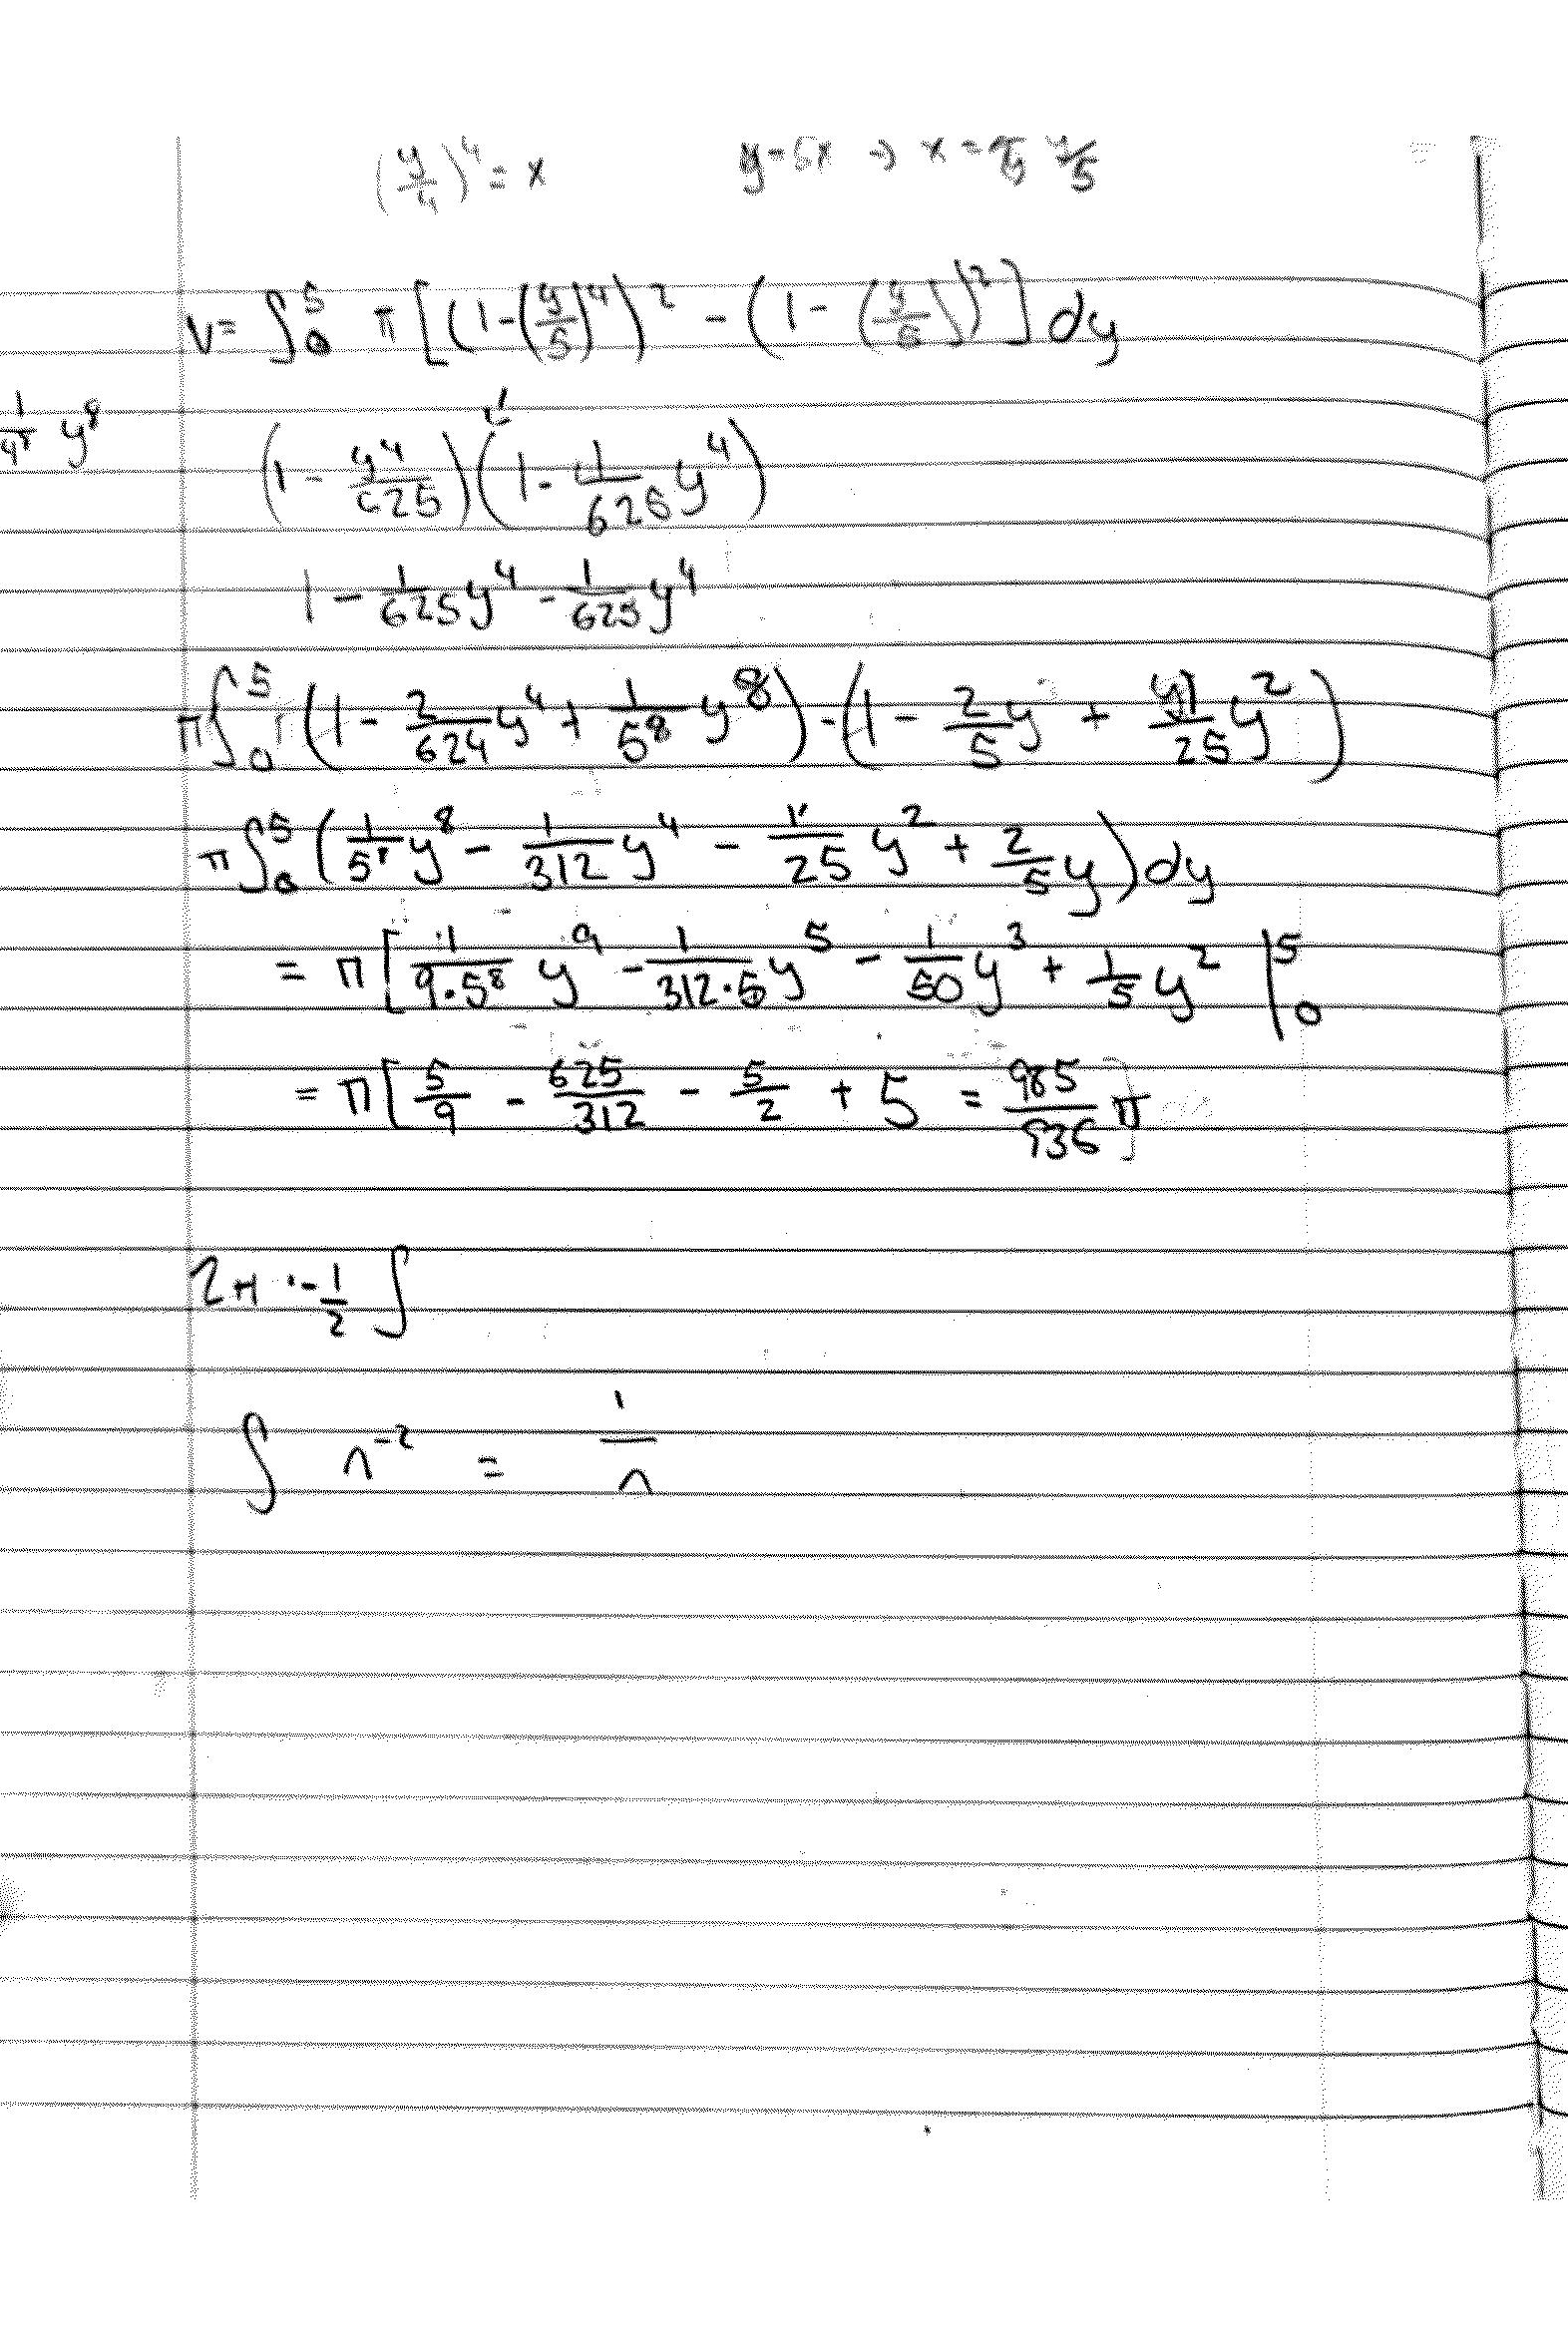 (y/4)^4 = x    y=5x → x = y/5
V = ∫_0^5 π[(1-(y/5)^4)^2 - (1-(y/5))^2] dy
y^8
(1 - y^4/625)(1 - 1/625 y^4)
1 - 1/625 y^4 - 1/625 y^4
π∫_0^5 (1 - 2/624 y^4 + 1/5^8 y^8) - (1 - 2/5 y + 1/25 y^2)
π∫_0^5 (1/5^8 y^8 - 1/312 y^4 - 1/25 y^2 + 2/5 y) dy
= π[1/(9·5^8) y^9 - 1/(312·5) y^5 - 1/50 y^3 + 1/5 y^2 |_0^5
= π[5/9 - 625/312 - 5/2 + 5 = 985/936 π
2π · -1/2 ∫
∫ n^-2 = 1/n